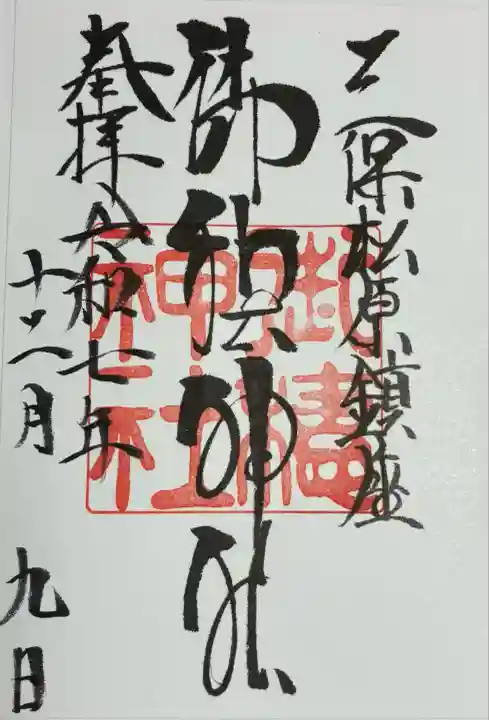 三保松原鎮座
御穂神社
奉拝
令和七年
十一月
九日
御穗
神社